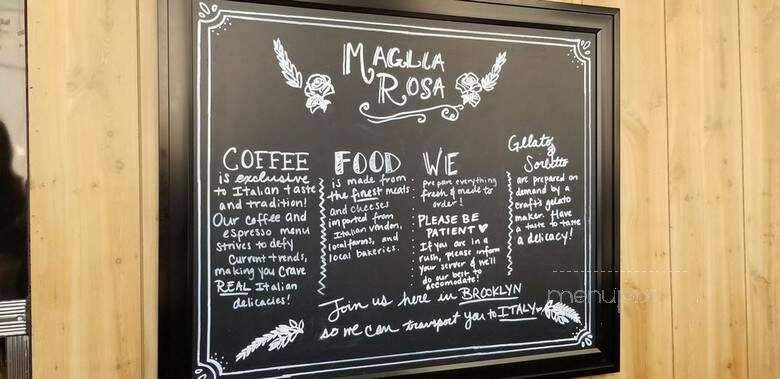 MAGLIA
ROSA
COFFEE
is exclusive
to Italian taste
and tradition!
Our coffee and
espresso menu
strives to defy
current trends,
making you crave
REAL Italian
delicacies!
FOOD
is made from
the finest meats
and cheeses
imported from
Italian vendors,
local farms, and
local bakeries.
WE
prepare everything
fresh & made to
order!
PLEASE BE
PATIENT ♥
If you are in a
rush, please inform
your server & we'll
do our best to
accomodate!
Gelato
&
Sorbetto
are prepared on
demand by a
craft's gelato
maker. Have
a taste to taste
a delicacy!
Join us here in BROOKLYN
so we can transport you to ITALY
menupix